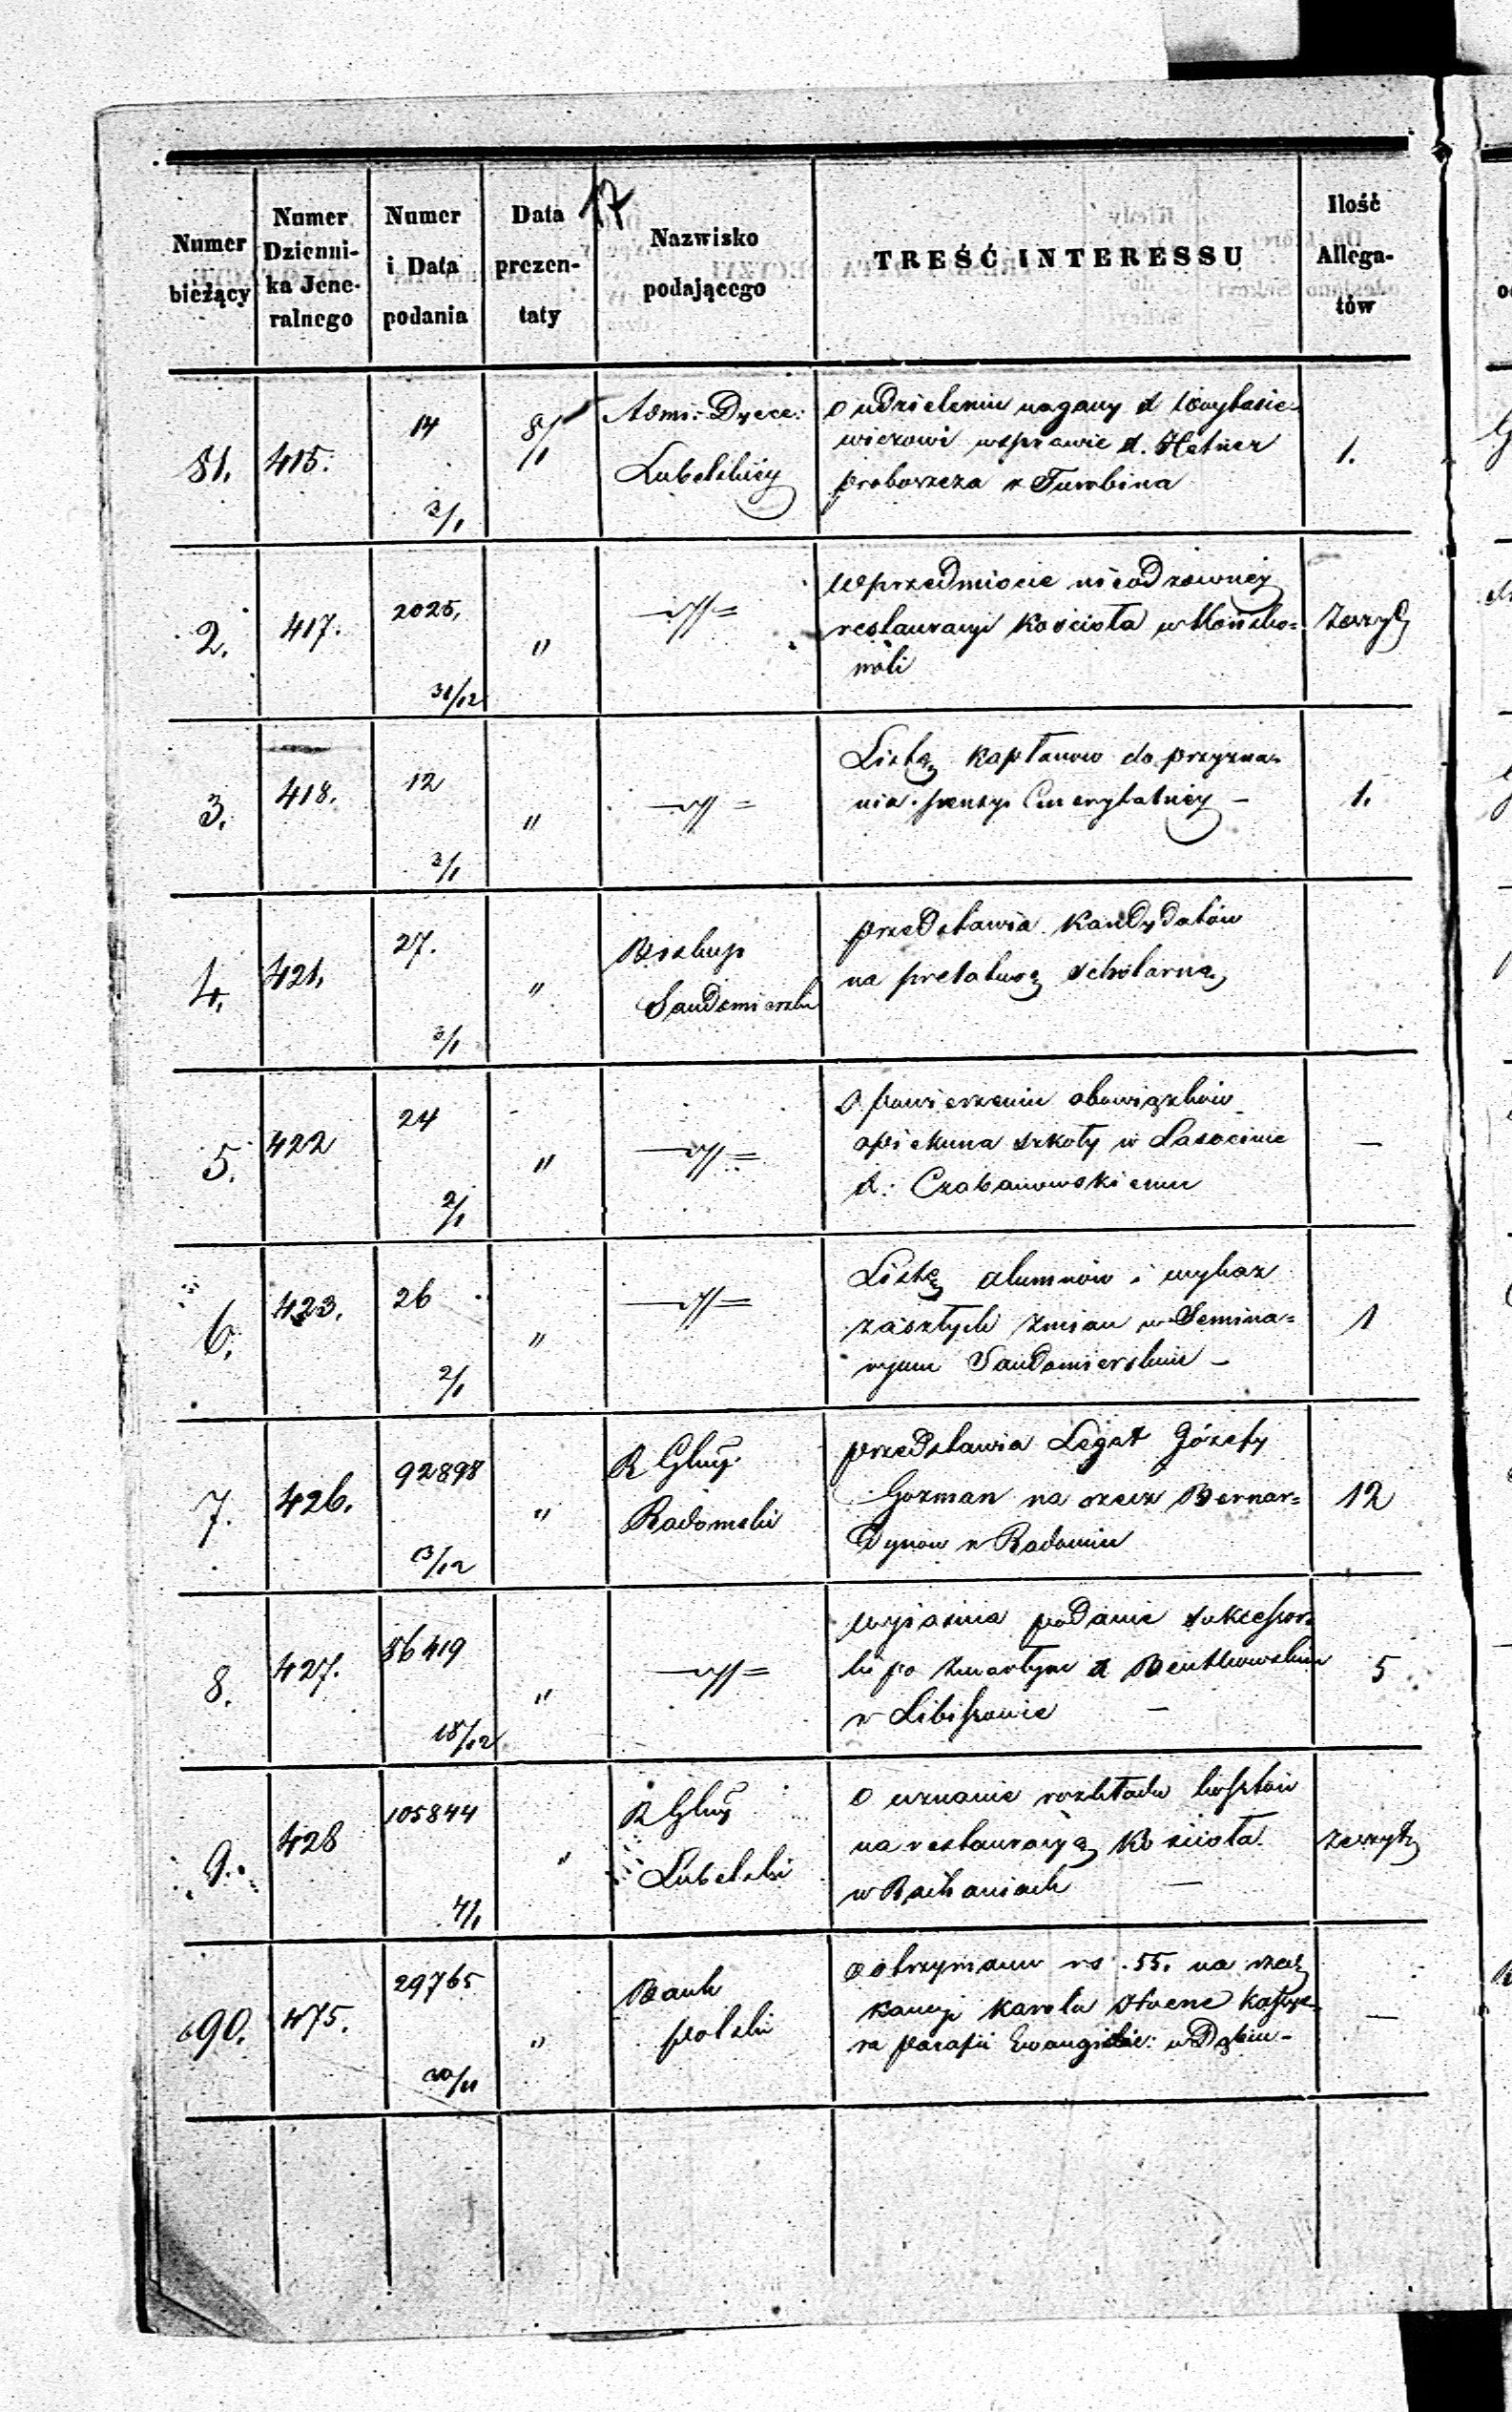 17
Numer bieżący
Numer Dzienni-ka Jene-ralnego
Numer i Data podania
Data prezen-taty
Nazwisko podającego
TREŚĆ INTERESSU
Ilość Allega-tów
81. 415. 14 3/1 8/1
Admi: Dyece:
Lubelskiéy
O udzieleniu nagany X
wiczowi w sprawie X. Hetner
proboszcza z Turobina
1.
2. 417. 2025, 31/12 "
w przedmiocie nieodzowney
restauracyi Kościoła w Końsko=
woli
Zeszyt
3. 418. 12 3/1 "
Listę Kapłanow do przyzna=
nia pensyi Emerytalnéy –
1.
4. 421. 27. 3/1 "
Biskup
Sandomierski
przedstawia Kandydatów
na prelaturę scholarną
5. 422 24 2/1 "
O powierzeniu obowiązków
opiekuna szkoły w Lasocinie
X: Czabanowskiemu
—
6. 423. 26 2/1 "
Listę alumnów i wykaz
zaszłych zmian w Semina=
ryum Sandomierskim –
1
7. 426. 92898 13/12 "
R Gbny
Radomski
przedstawia Legat Józefy
Gozman na rzecz Bernar=
dynow w Radomiu
12
8. 427. 86419 18/12 "
wyjasnia podanie sukcessor=
ki po zmarłym X Bentkowskim
w Libiszowie —
5
9. 428 105844 4/1 "
R Gbny
Lubelski
O uznanie rozkładu kosztów
na restauracyą Kościoła
w Rachaniach —
Zeszyt
690. 475. 29765 20/11 "
Bank
polski
o otrzymaniu rs. 55. na rzecz
kaucyi Karola Kassye=
ra parafii Ewangielic: w Dąbiu –
—